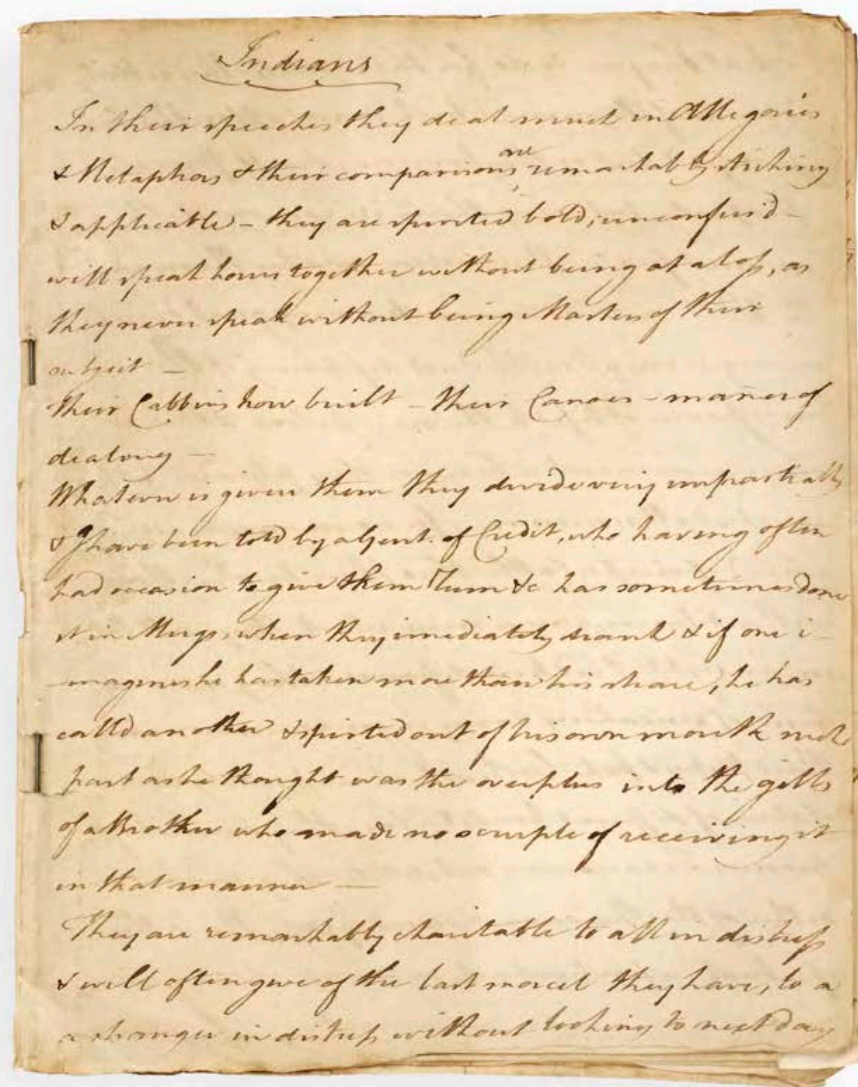 Indians
In their speeches they deal much in Allegories
& Metaphors & their comparisons are remarkably striking
& applicable – they are spirited bold, unconfus'd –
will speak hours together without being at a loss, as
they never speak without being Masters of their
subject –
Their Cabbins how built – their Canoes – maner of
dealing –
Whatever is given them they divide very impartially
& I have been told by a Gent. of Credit, who having often
had occasion to give them Rum &c has sometimes done
it in Mugs, when they imediately drank & if one i-
-magines he has taken more than his share, he has
calld another & spirted out of his own mouth such
part as he thought was the overplus into the gills
of a Brother who made no scruple of receiving it
in that manner –
They are remarkably charitable to all in distress
& will often give of the last morcel they have, to a
a stranger in distress without looking to next day